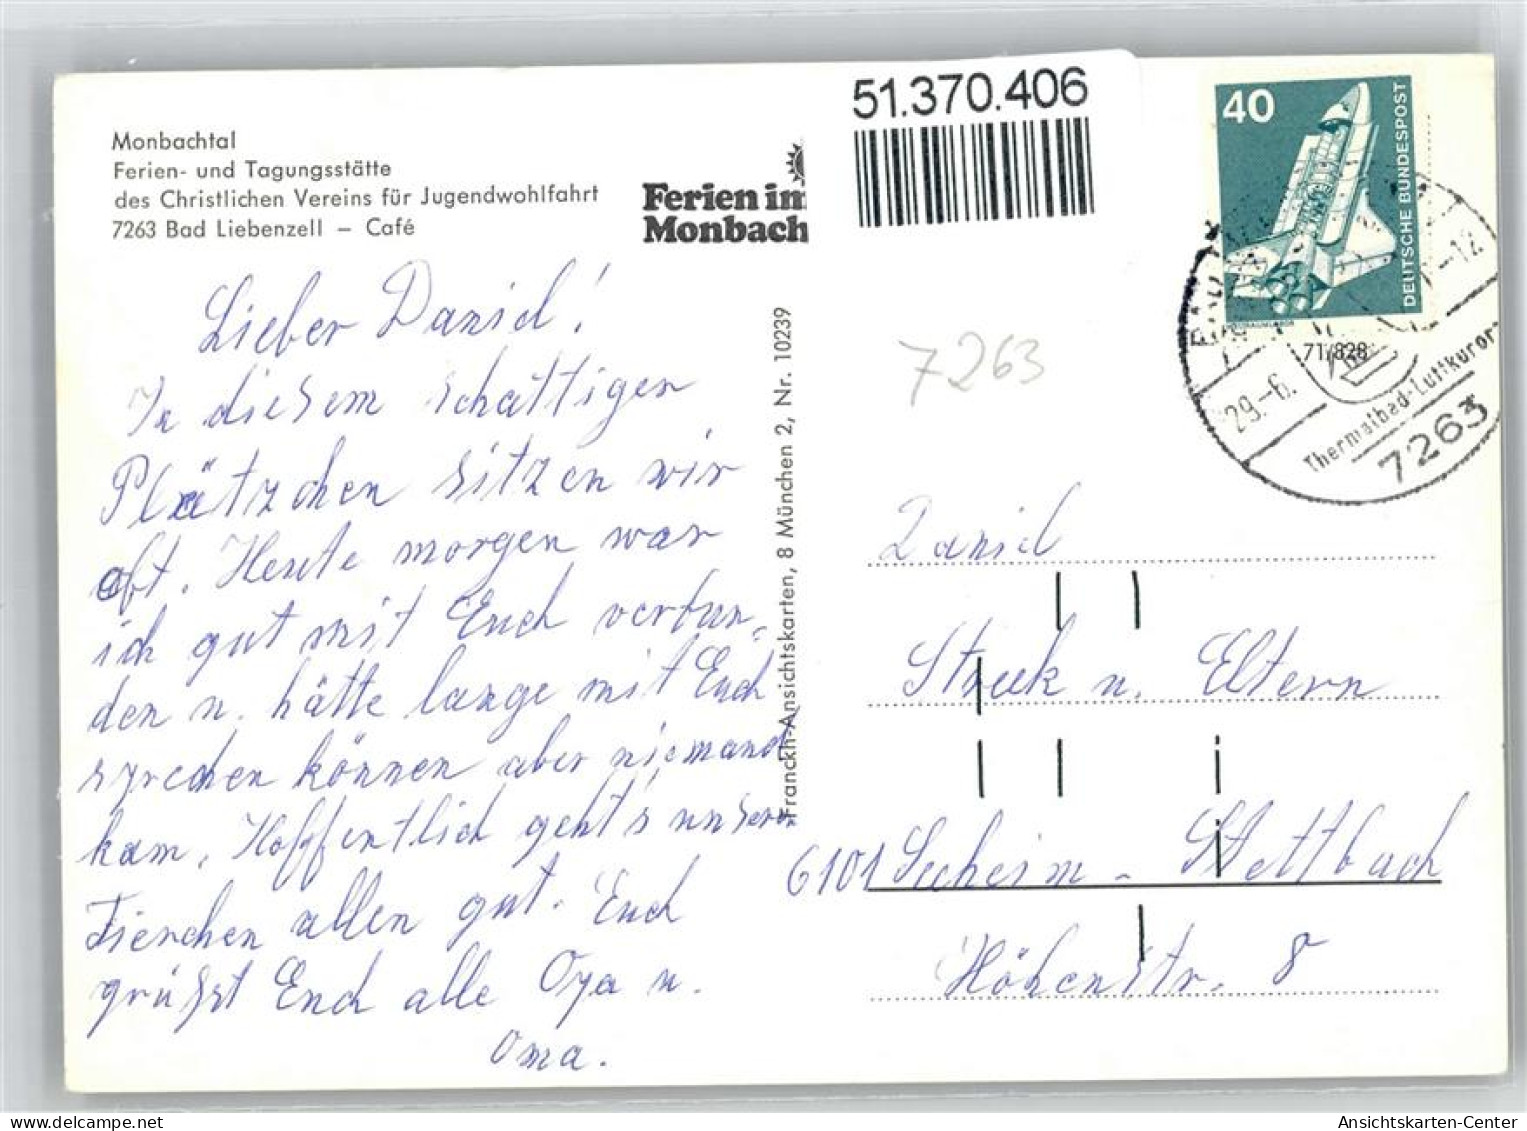 Monbachtal
Ferien- und Tagungsstätte
des Christlichen Vereins für Jugendwohlfahrt
7263 Bad Liebenzell – Café
Ferien im
Monbach
51.370.406
40
DEUTSCHE BUNDESPOST
71/828
29.-6.
-12
Thermalbad-Luftkurort
7263
7263
Lieber Daniel!
In diesem schattigen
Plätzchen sitzen wir
oft. Heute morgen war
ich gut mit Euch verbun-
den u. hätte lange mit Euch
sprechen können aber niemand
kam. Hoffentlich geht's unseren
Tierchen allen gut. Euch
grüßt Euch alle Opa u.
Oma.
Franckh-Ansichtskarten, 8 München 2, Nr. 10239
Daniel
Streek u. Eltern
6101 Seeheim - Stettbach
Höhenstr. 8
Ansichtskarten-Center